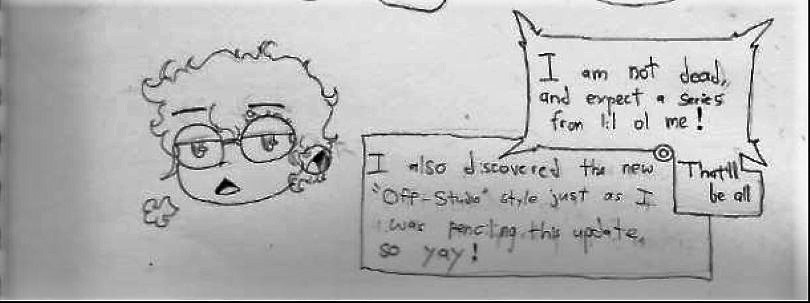 I am not dead,
and expect a series
from lil ol me!
I also discovered the new
"Off-Studio" style just as I
was penciling this update,
so yay!
That'll
be all